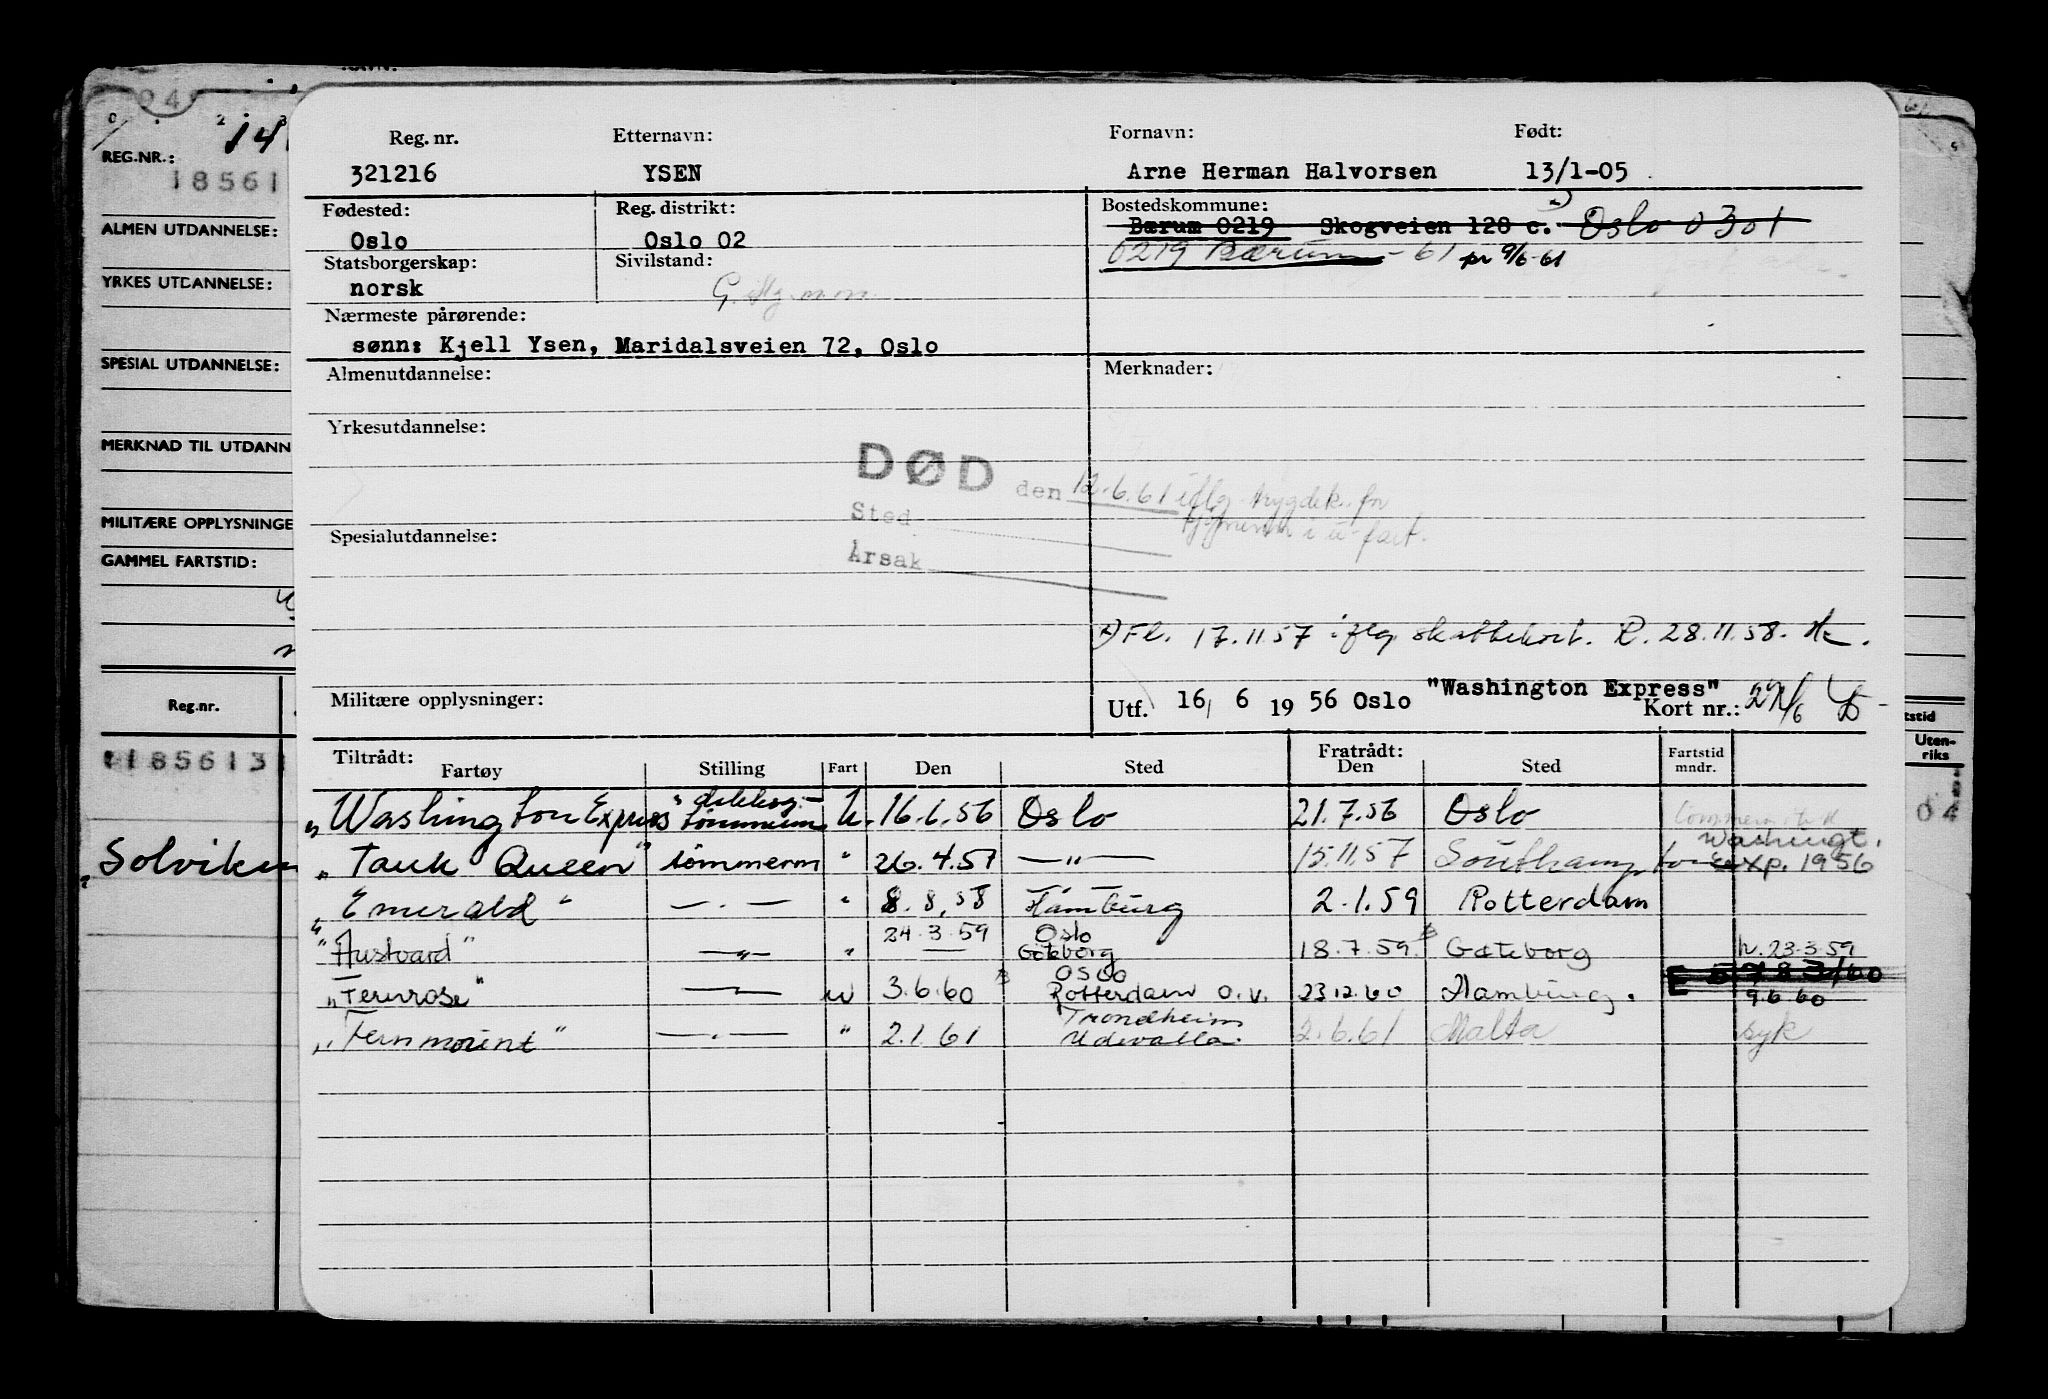 REG.NR.:
18561
ALMEN UTDANNELSE:
YRKES UTDANNELSE:
SPESIAL UTDANNELSE:
MERKNAD TIL UTDANN
MILITÆRE OPPLYSNINGE
GAMMEL FARTSTID:
Reg.nr.
185613
Solvik
Reg. nr. Etternavn: Fornavn: Født:
321216 YSEN Arne Herman Halvorsen 13/1-05
Fødested: Reg. distrikt: Bostedskommune:
Oslo Oslo 02 Bærum 0219 Skogveien 120 c. Oslo 0301
Statsborgerskap: Sivilstand: 0219 Bærum - 61 pr 9/6-61
norsk G.
Nærmeste pårørende:
sønn: Kjell Ysen, Maridalsveien 72, Oslo
Almenutdannelse: Merknader:
Yrkesutdannelse:
DØD den 12.6.61 iflg trygdek. for
Sted sjømenn i u-fart.
Årsak
Spesialutdannelse:
x) Fl. 17.11.57 iflg skattekort. R. 28.11.58.
Militære opplysninger: Utf. 16/ 6 1956 Oslo "Washington Express" Kort nr.:
Tiltrådt: Fratrådt: Fartstid mndr.
Fartøy Stilling Fart Den Sted Den Sted
"Washington Express" dekksg. tømmerm. u. 16.6.56 Oslo 21.7.56 Oslo
"Tank Queen" tømmerm " 26.4.57 —"— 15.11.57 Southampton Washingt. Exp. 1956
"Emerald" — " — " 8.8.58 Hamburg 2.1.59 Rotterdam
"Hustvard" — " — " 24.3.59 Oslo Gøteborg 18.7.59 Gøteborg h. 23.3.59
"Fernrose" u 3.6.60 Oslo Rotterdam o.v. 23.12.60 Hamburg. 9.6.60
"Fernmount" — " — " 2.1.61 Trondheim Udevalla. 2.6.61 Malta syk
tstid
Uten-
riks
04